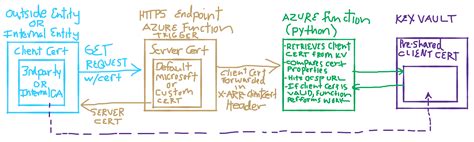 Outside Entity
OR
Internal Entity
Client Cert
3rd party
OR
Internal CA
GET
REQUEST
w/cert
SERVER
CERT
HTTPS Endpoint
AZURE Function
TRIGGER
Server Cert
Default
Microsoft
or
Custom
CERT
Client Cert
Forwarded
in
X-ARR-ClientCert
Header
AZURE Function
(python)
-RETRIEVES Client
CERT from KV
-Compares Cert
Properties
-Hits OCSP URL
-If client Cert is
VALID, Function
Performs work
KEY VAULT
Pre-shared
CLIENT CERT